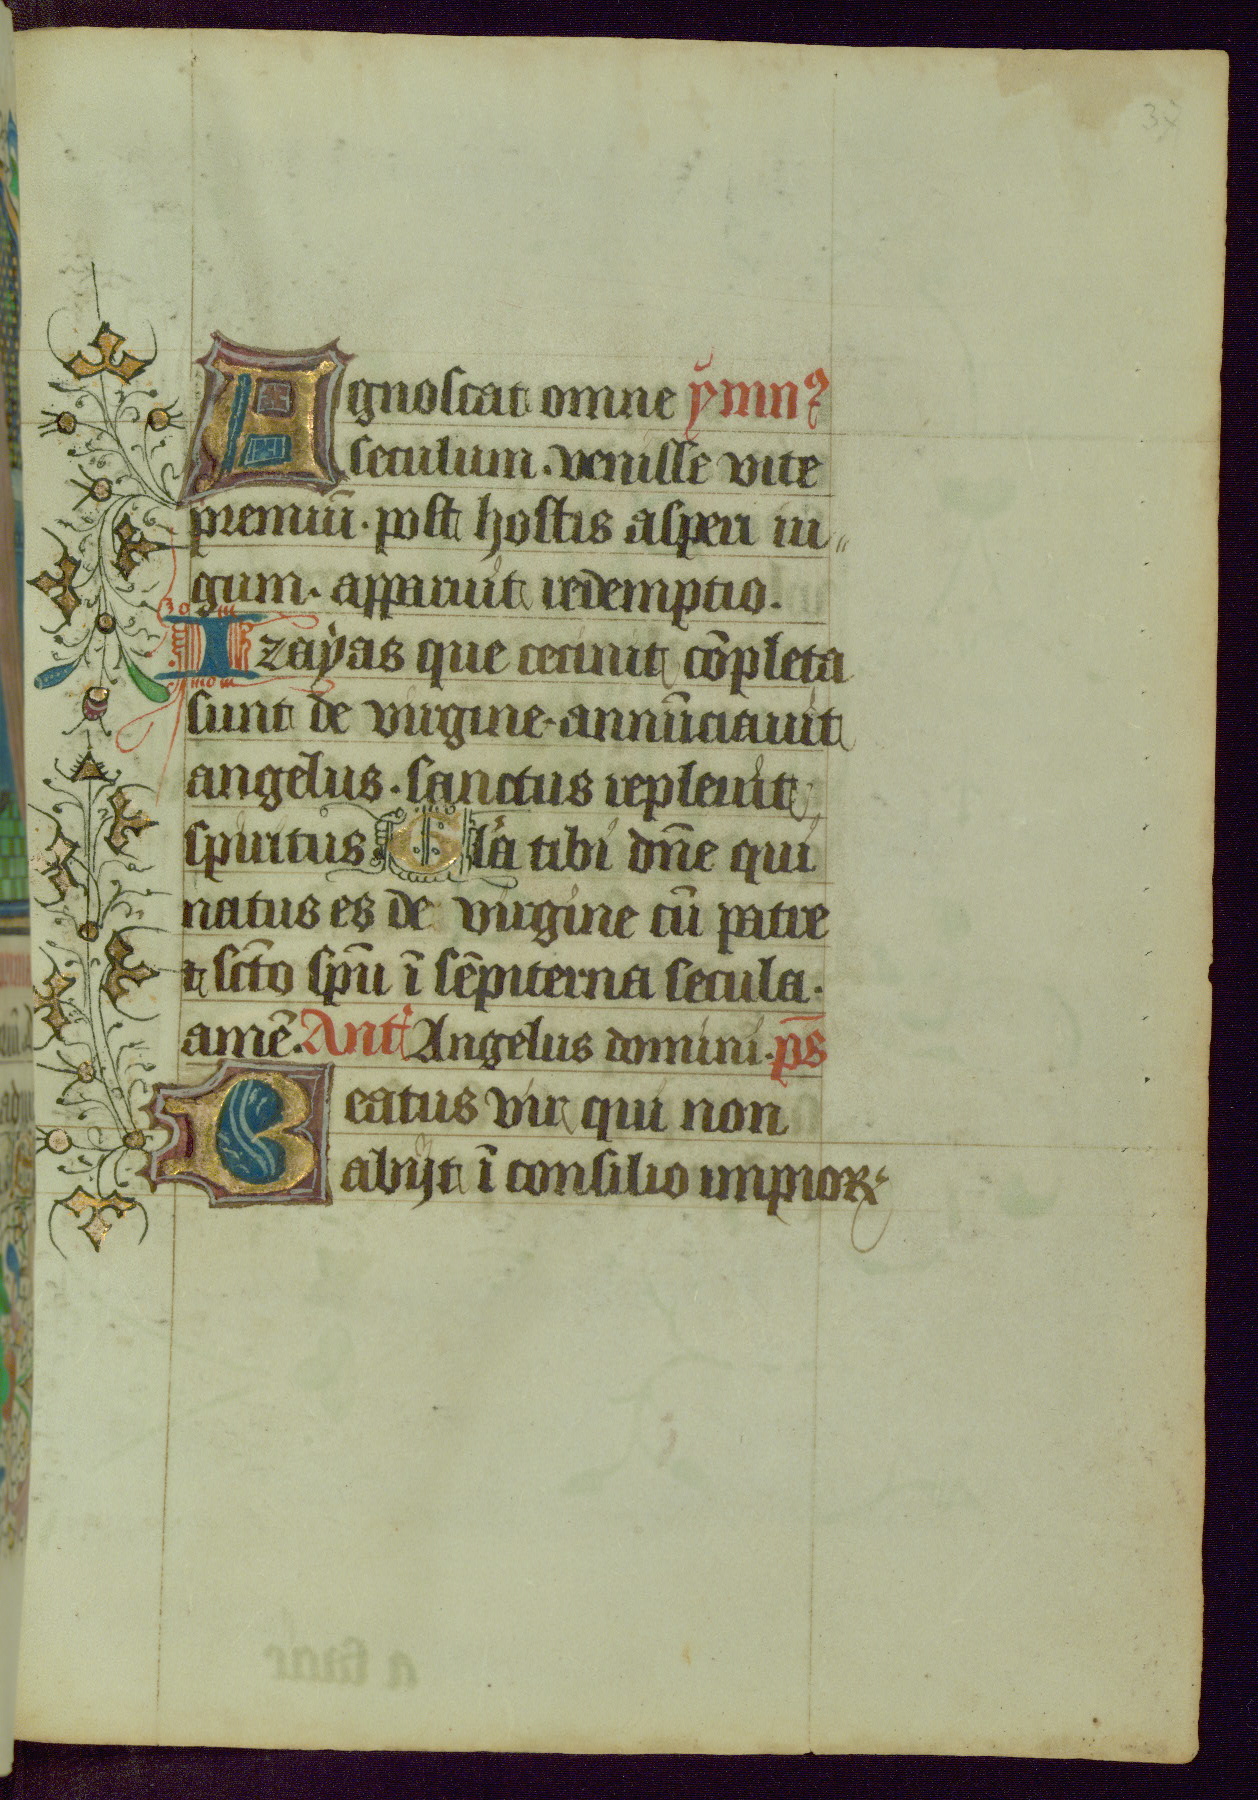 37
Agnoscat omne ÿmnꝰ
seculum. venisse vite
premiū. post hostis asperi iu„
gum. apparuit redemptio.
Izaÿas que cecinit cōpleta
sunt de virgine. annūciauit
angelus. sanctus repleuit
spiritus. Gl̄a tibi dn̄e qui
natus es de virgine cū patre
⁊ scto spū ī sēpiterna secula.
amē. Ant̄ Angelus domini. p̄s
Beatus vir qui non
abijt ī consilio impioꝝ